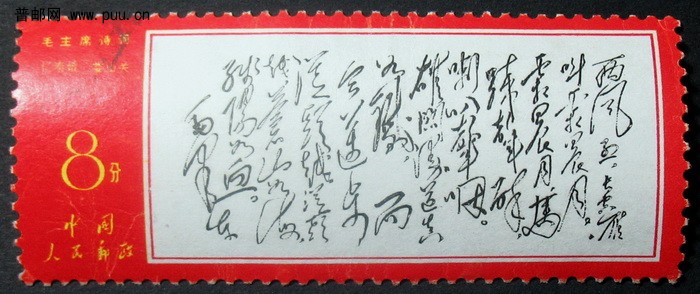 普邮网 www.puu.cn
毛主席诗词
忆秦娥 娄山关
8分
中国
人民邮政
西风烈 长空雁
叫霜晨月
霜晨月 马
蹄声碎
喇叭声咽
雄关漫道真
如铁 而
今迈步
从头越 从头
越 苍山如海
残阳如血
毛泽东